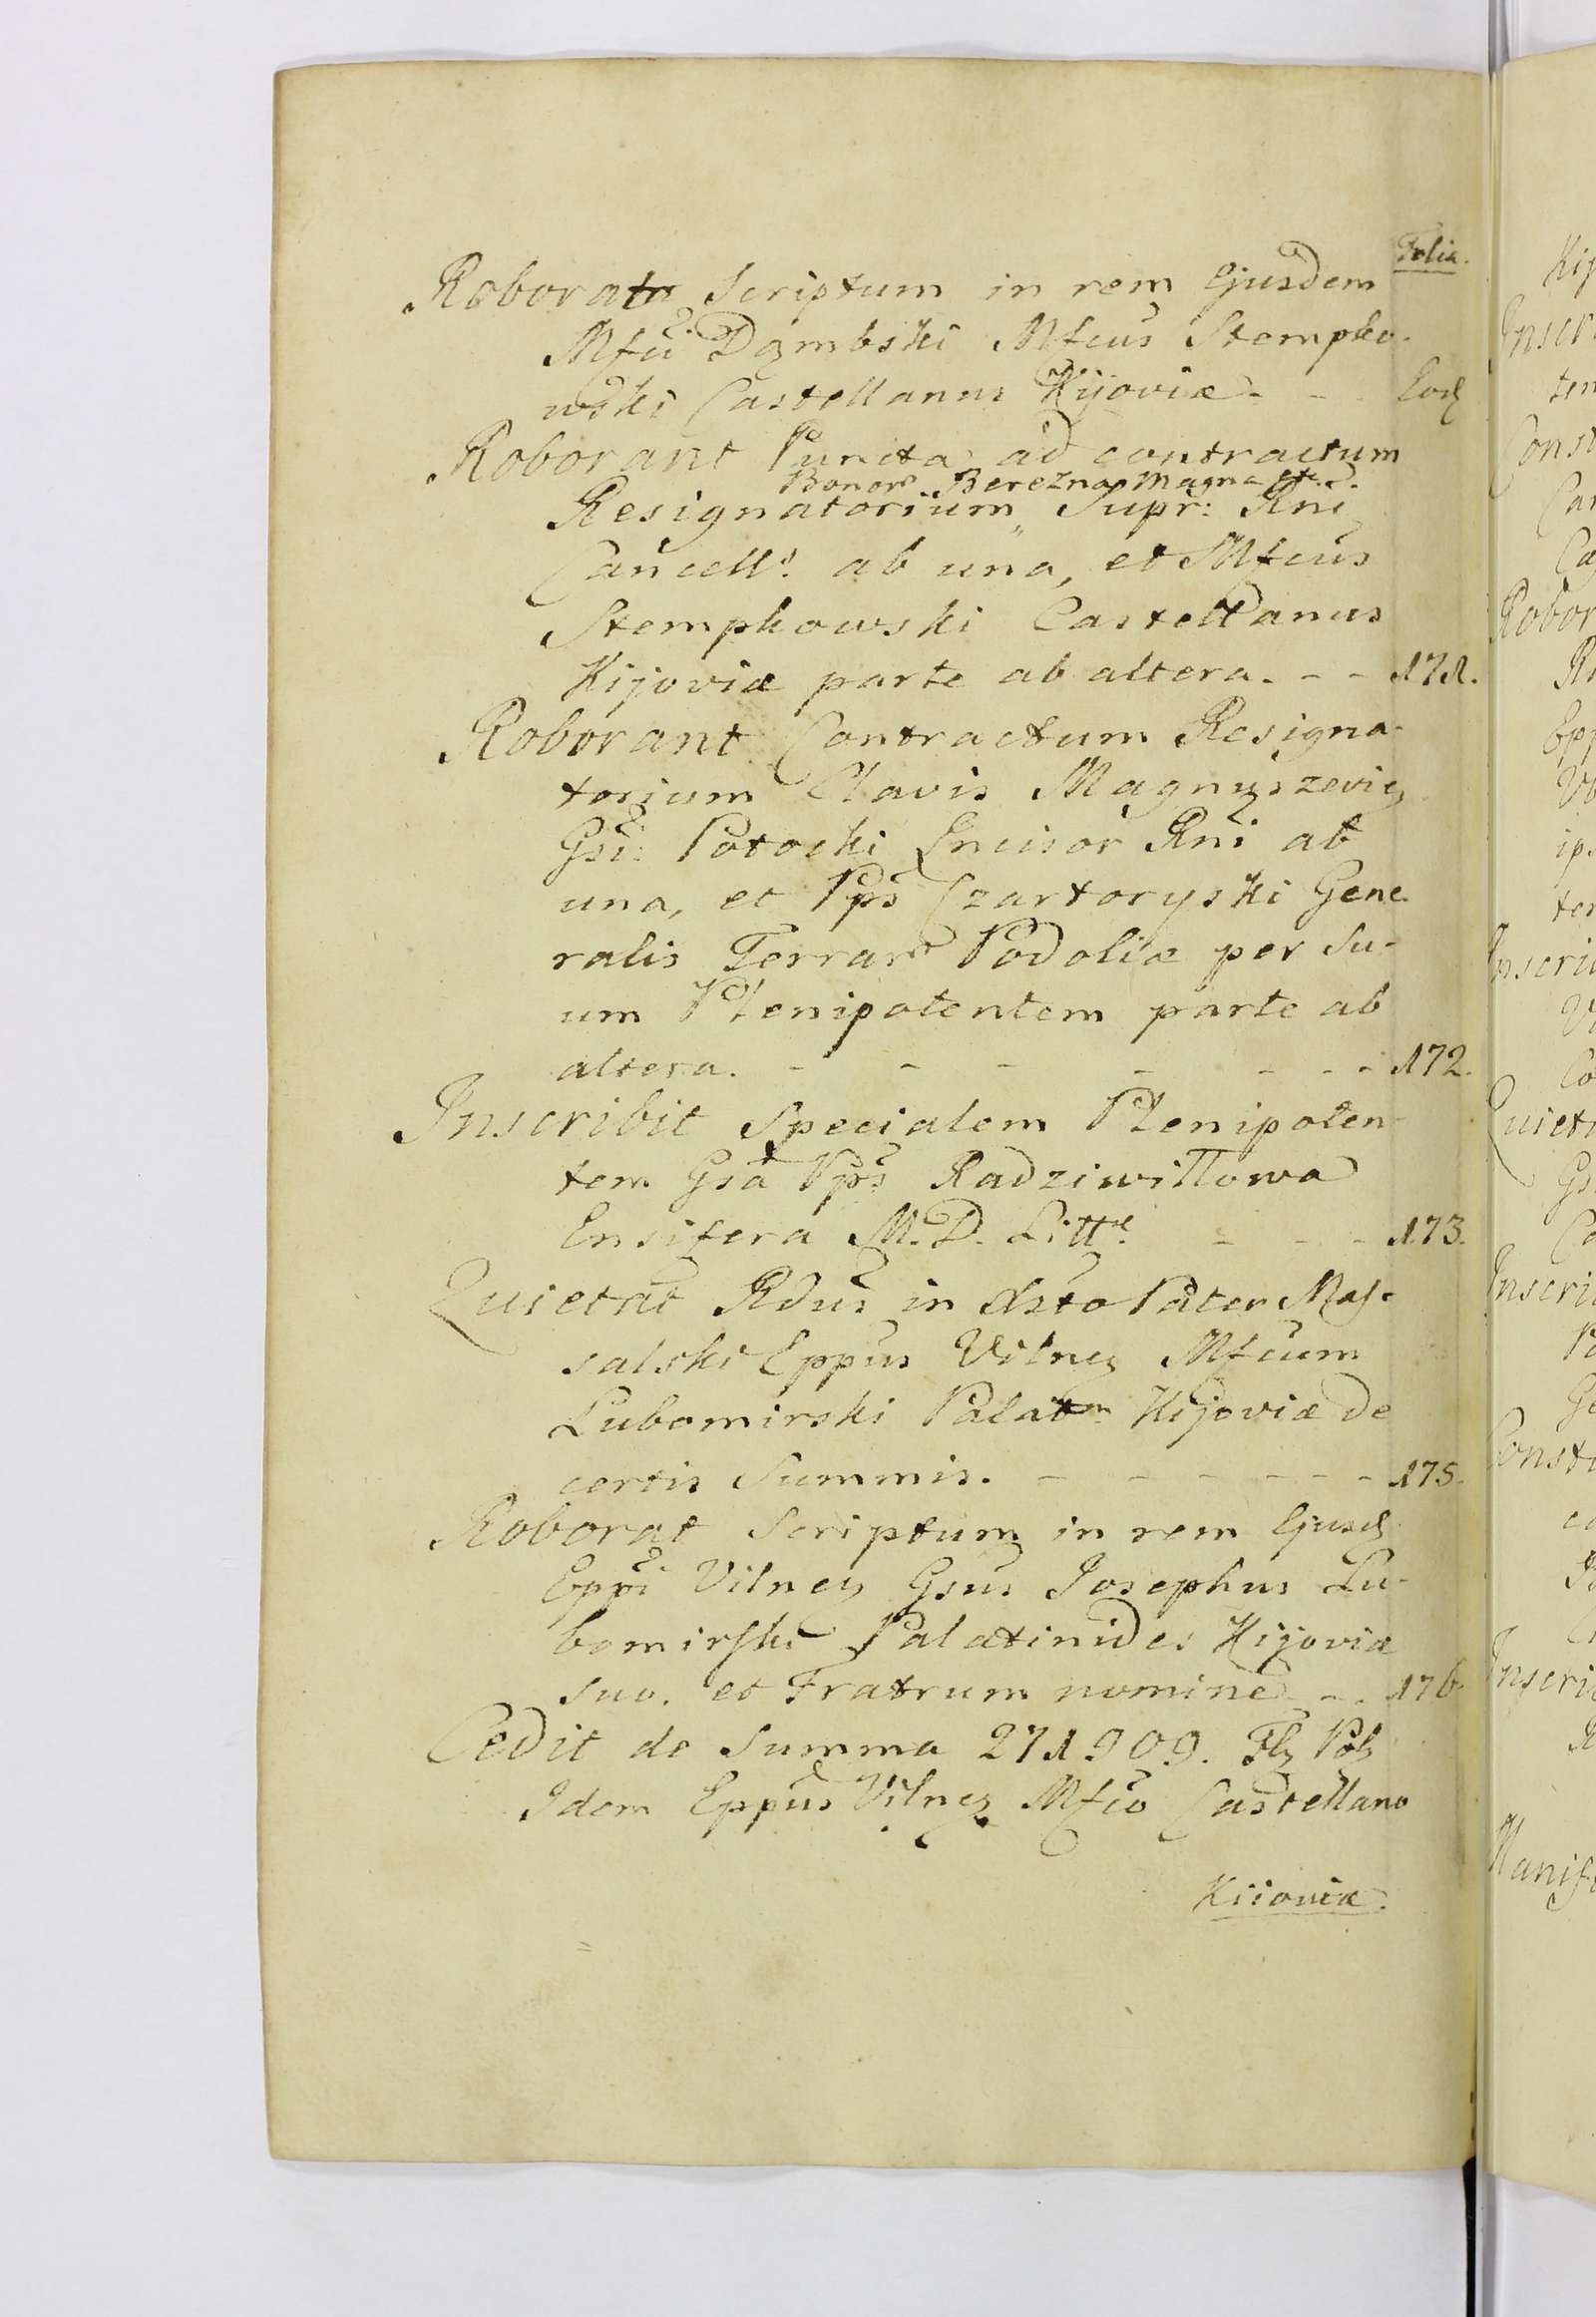 Folia.
Roborat Scriptum in rem Ejusdem
Mfci Dąmbski Mfcus Stempko-
wski Castellanus Kijoviæ - - Eod
Roborant Puncta ad contractum
Bonor Berezna Magna etc.
Resignatorium Supr: Rni
Cancell. ab una, et Mfcus
Stempkowski Castellanus
Kijoviæ parte ab altera. - - 171.
Roborant Contractum Resigna-
torium Clavis Magnuszevien
Gsi: Potocki Incisor Rni ab
una, et Pps Czartoryski Gene-
ralis Terrar Podoliæ per Su-
um Plenipotentem parte ab
altera. - - - - - - - 172.
Inscribit Specialem Plenipoten-
tem Gsa Pps Radziwiłłowa
Ensifera M. D. Litt. - - - 173.
Quietat Rdus in Xsto Pater Mas-
salski Eppus Vilnen Mfcum
Lubomirski Palatm Kijoviæ de
certis Summis. - - - - - - 175.
Roborat Scriptum in rem Ejusd
Eppi Vilnen Gsus Josephus Lu-
bomirski Palatinides Kijoviæ
suo. et Fratrum nomine - - 176.
Cedit de Summa 271909. Fl Pol
Idem Eppus Vilnen Mfco Castellano
Kiioviæ.
Kij
Inscri
ten
Const
Car
Ca
Robor
Rn
Epp
ips
ten
Inscri
Co
Quieta
Gs
Ca
Inscri
Po
Ge
Const
Inscri
Manif